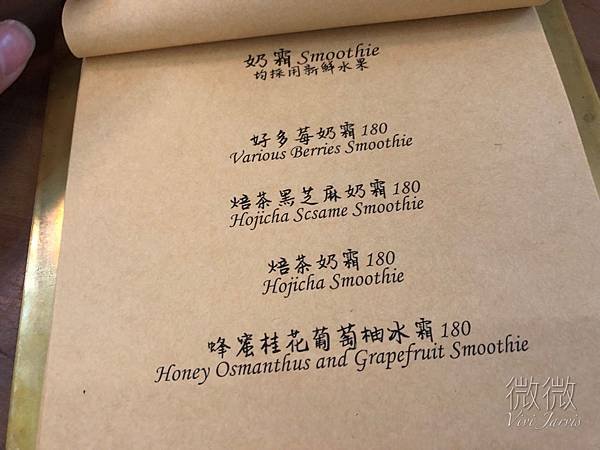 奶霜 Smoothie
均採用新鮮水果
好多莓奶霜 180
Various Berries Smoothie
焙茶黑芝麻奶霜 180
Hojicha Scsame Smoothie
焙茶奶霜 180
Hojicha Smoothie
蜂蜜桂花葡萄柚冰霜 180
Honey Osmanthus and Grapefruit Smoothie
微微
Vivi Jarvis